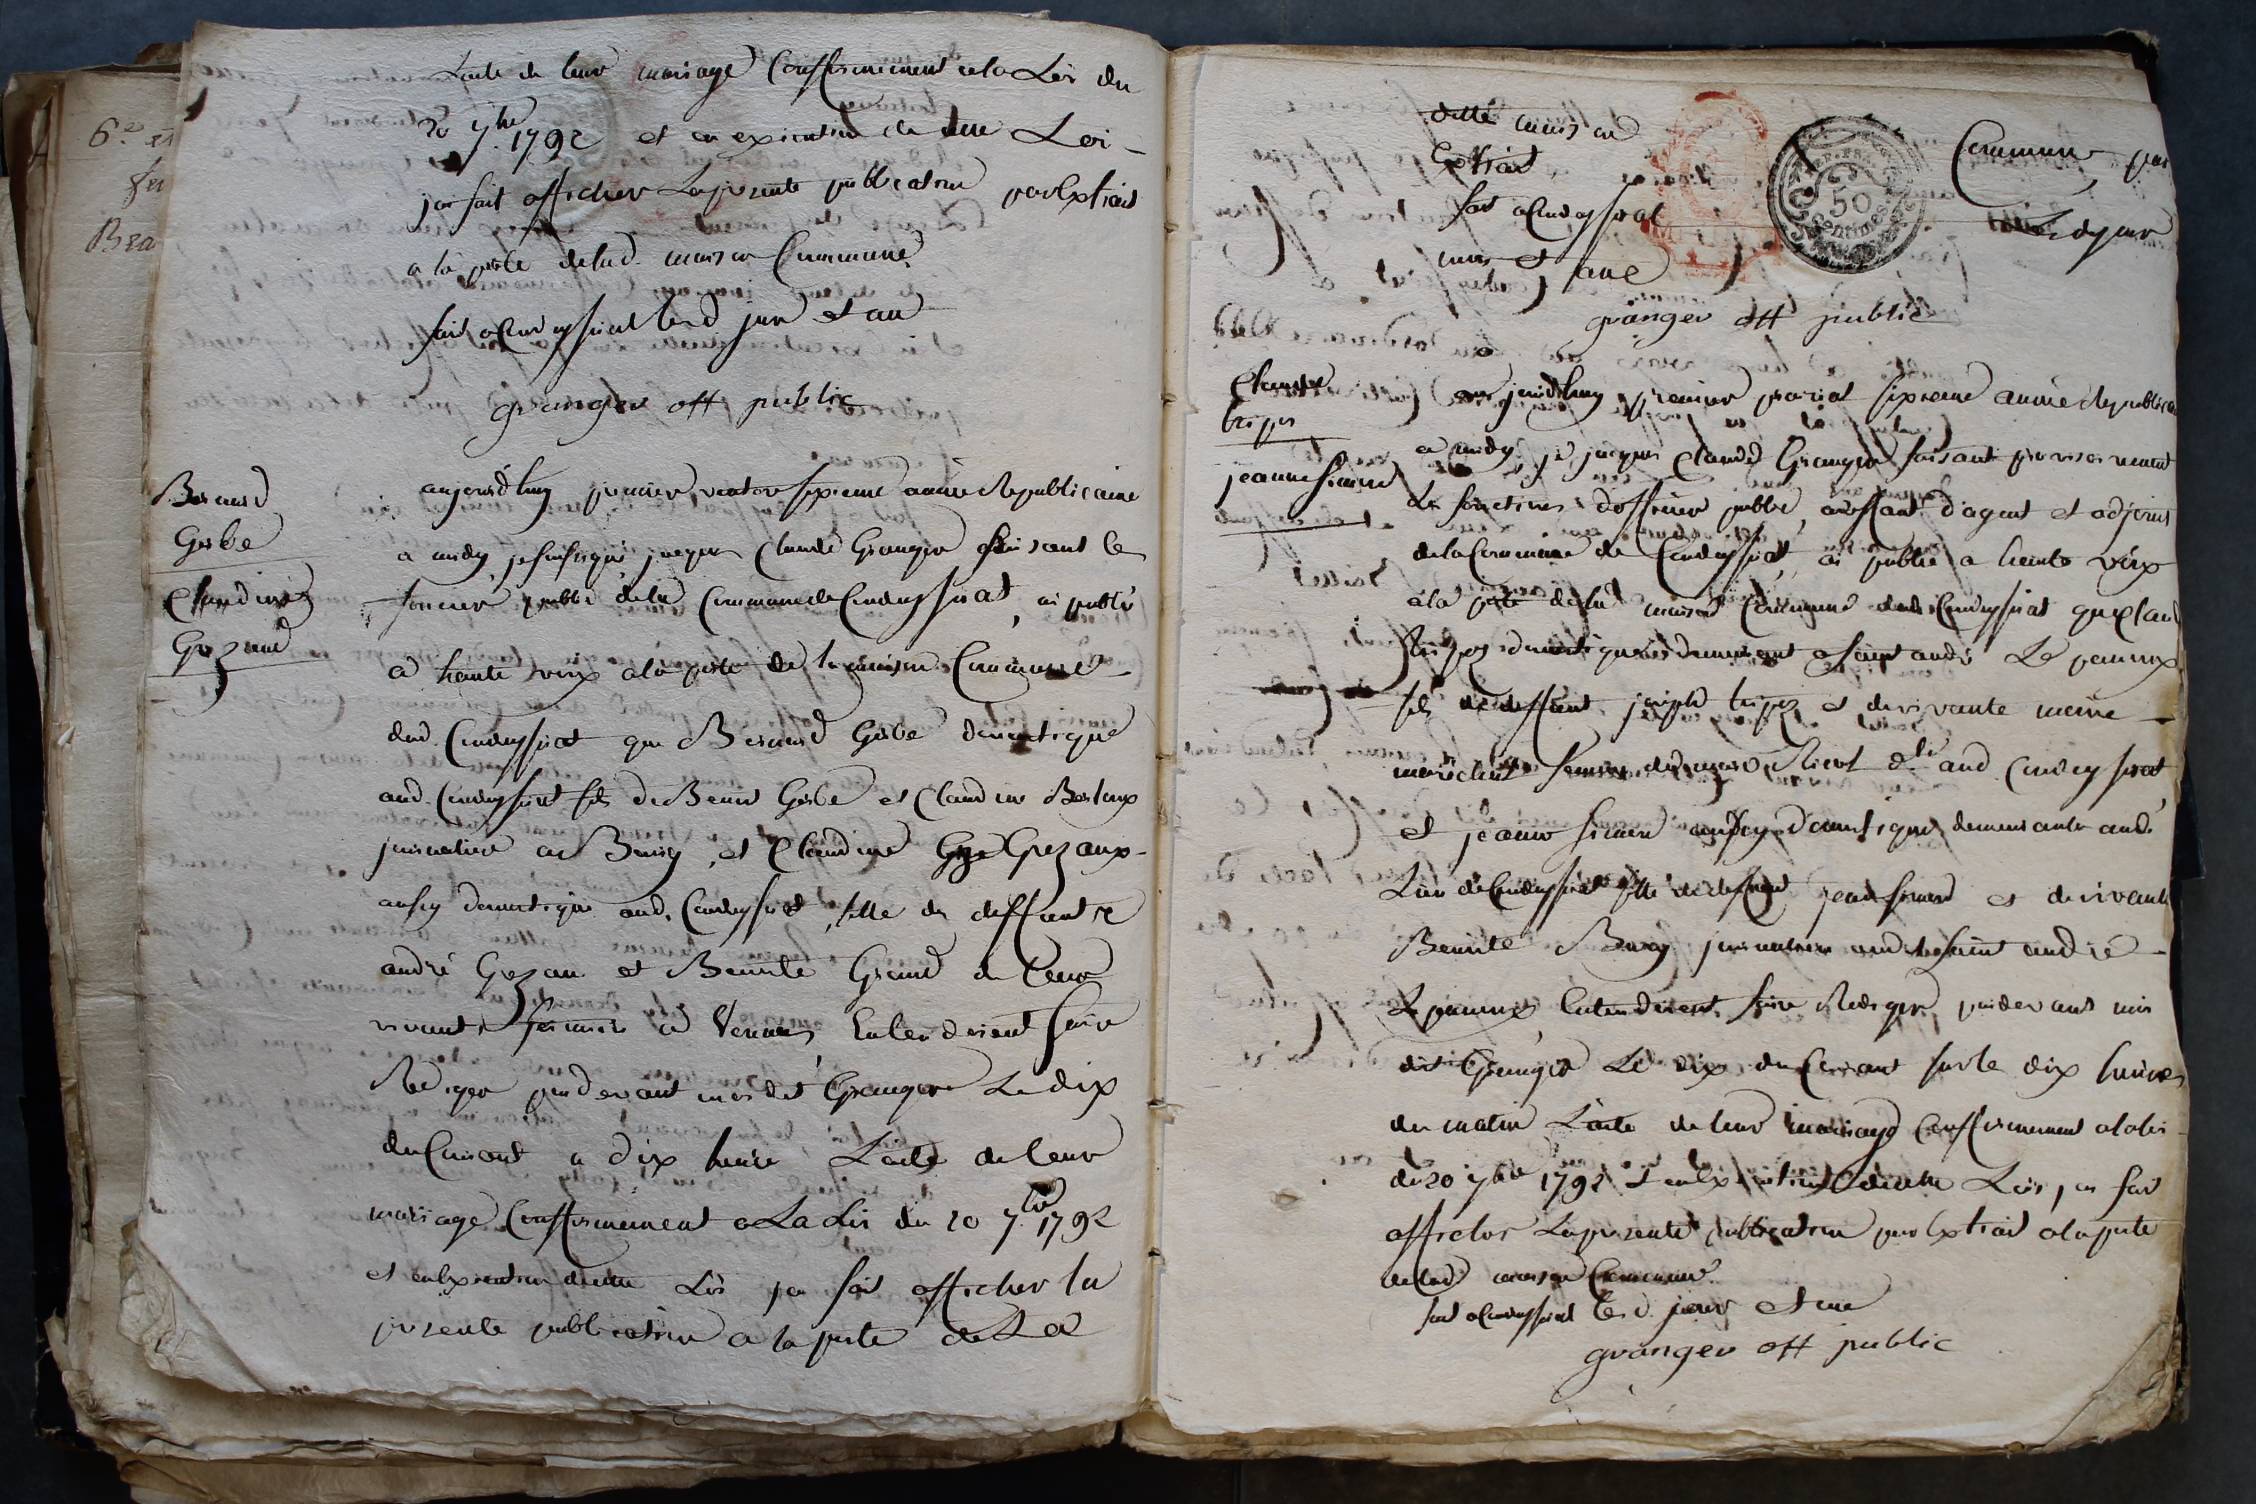 6e
Bea
L'acte de leur mariage Conffermement a la Loi du
20 7bre 1792 et en execution de cette Loi
j'ai fait afficher la presente publication par Extrait
a la porte de lad. maison Commune
fait a Condeyssiat led jour et an
granger off public
Benard
Gerbe
Claudine
Gozand
aujourd'huy premier ventose sixieme année Republicaine
a midy, je soussigné jacques Claude Granger faisant les
public de la Commune de Condeyssiat, ai publié
a haute voix a la porte de la maison Commune
dud. Condeyssiat que Benard Gerbe domestique
aud. Condeyssiat fils de Benoit Gerbe et Claudine
a Bourg, et Claudine Gozaux
aussy domestique aud. Condeyssiat, fille de deffunts
andré Gozau et Benoite Grand de leur
vivants fermier a Entenderoient faire
Rediger pardevant moi dit Granger Le dix
du Courant a dix heure L'acte de leur
mariage Conffermement a La Loi du 20 7bre 1792
et en Execution de cette Loi j'ai fait afficher la
presente publication a la porte de La
ditte maison
Extrait
fait a Condeyssiat
mois et an
REP. FRA.
50
Centimes
Commune par
Les jour
granger off public
Claude
tripoz
jeanne
aujourd'huy premier prairial sixieme année Republicaine
a midy, je jacques Claude Granger faisant provisoirement
les fonctions d'officier public, d'agent et adjoint
de la Commune de Condeyssiat, ai publié a haute voix
a la porte de lad maison Commune dud Condeyssiat que Claude
tripoz domestique demeurant a saint andré Le panoux
fils de deffunt joseph tripoz et de vivante marie
aud. Condeyssiat
et jeanne aussy domestique demeurante aud.
Lieu de Condeyssiat fille de deffunt jean et de vivante
Benoite saint andré
Le panoux, Entenderoient faire Rediger pardevant moi
dit Granger Le dix du Courant sur le dix heures
du matin L'acte de leur mariage Conffermement a la loi
du 20 7bre 1792 et en Execution de cette Loi, j'ai fait
afficher La presente publication par Extrait a la porte
de lad maison Commune
fait a Condeyssiat les d. jour et an
granger off public